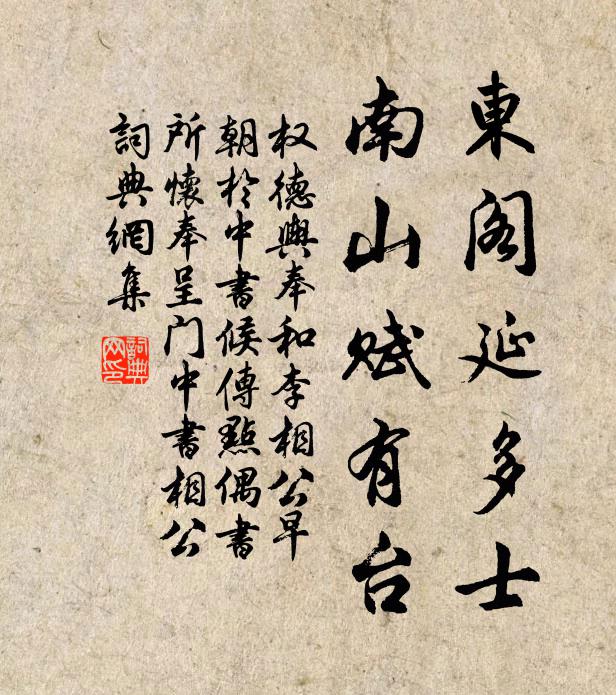 東阁延多士
南山赋有台
权德舆奉和李相公早
朝於中書候傳點偶書
所懷奉呈门中書相公
詞典網集
詞典網印